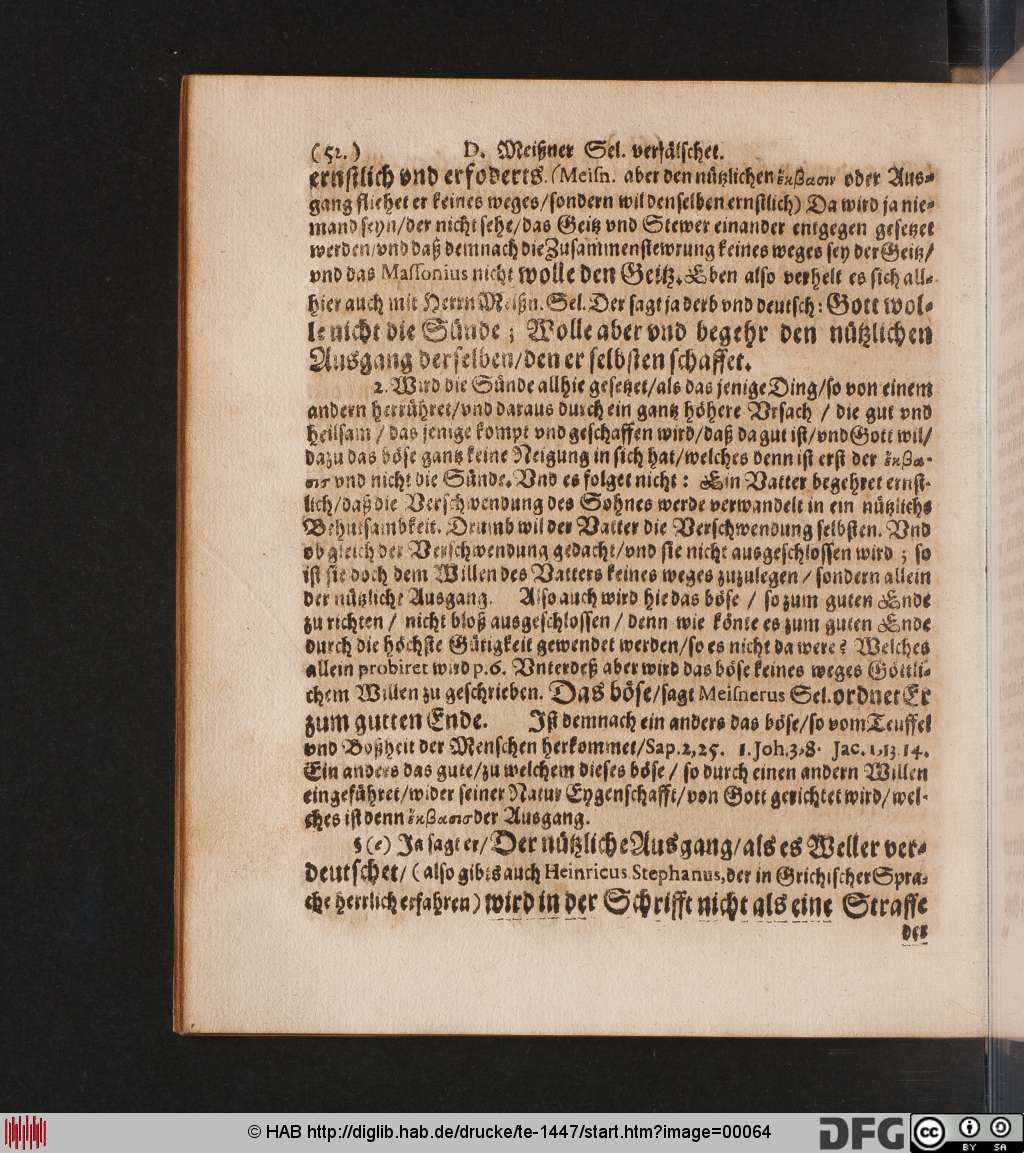 (52.) D. Meißner Sel. verfälschet.
ernstlich vnd erfoderts. (Meisn. aber den nützlichen ἔκβασιν oder Aus⸗
gang fliehet er keines weges/sondern wil denselben ernstlich) Da wird ja nie⸗
mand seyn/der nicht sehe/das Geitz vnd Stewer einander entgegen gesetzet
werden/vnd daß demnach die Zusammenstewrung keines weges sey der Geitz/
vnd das Massonius nicht wolle den Geitz. Eben also verhelt es sich all⸗
hier auch mit Herrn Meißn. Sel. Der sagt ja derb vnd deutsch: Gott wol⸗
le nicht die Sünde; Wolle aber vnd begehr den nützlichen
Ausgang derselben/den er selbsten schaffet.
2. Wird die Sünde allhie gesetzet/als das jenige Ding/so von einem
andern herrühret/vnd daraus durch ein gantz höhere Vrsach / die gut vnd
heilsam / das jenige kompt vnd geschaffen wird/daß da gut ist/vnd Gott wil/
dazu das böse gantz keine Neigung in sich hat/welches denn ist erst der ἔκβα⸗
σισ vnd nicht die Sünde. Vnd es folget nicht: Ein Vatter begehret ernst⸗
lich/daß die Verschwendung des Sohnes werde verwandelt in ein nützlichs
Behutsambkeit. Drumb wil der Vatter die Verschwendung selbsten. Vnd
ob gleich der Verschwendung gedacht/vnd sie nicht ausgeschlossen wird; so
ist sie doch dem Willen des Vatters keines weges zuzulegen/sondern allein
der nützliche Ausgang. Also auch wird hie das böse / so zum guten Ende
zu richten / nicht bloß ausgeschlossen / denn wie könte es zum guten Ende
durch die höchste Gütigkeit gewendet werden/so es nicht da were? Welches
allein probiret wird p. 6. Vnterdeß aber wird das böse keines weges Göttli⸗
chem Willen zu geschrieben. Das böse/sagt Meisnerus Sel. ordnet Er
zum gutten Ende. Ist demnach ein anders das böse/so vom Teuffel
vnd Boßheit der Menschen herkommet/Sap. 2, 25. 1. Joh. 3, 8. Jac. 1, 13. 14.
Ein anders das gute/zu welchem dieses böse / so durch einen andern Willen
eingeführet/wider seiner Natur Eygenschafft/von Gott gerichtet wird/wel⸗
ches ist denn ἔκβασισ der Ausgang.
§ (e) Ja sagt er/Der nützliche Ausgang/als es Weller ver⸗
deutschet/ (also gibts auch Heinricus Stephanus, der in Grichischer Spra⸗
che herrlich erfahren) wird in der Schrifft nicht als eine Straffe
der
© HAB http://diglib.hab.de/drucke/te-1447/start.htm?image=00064
DFG
cc BY SA